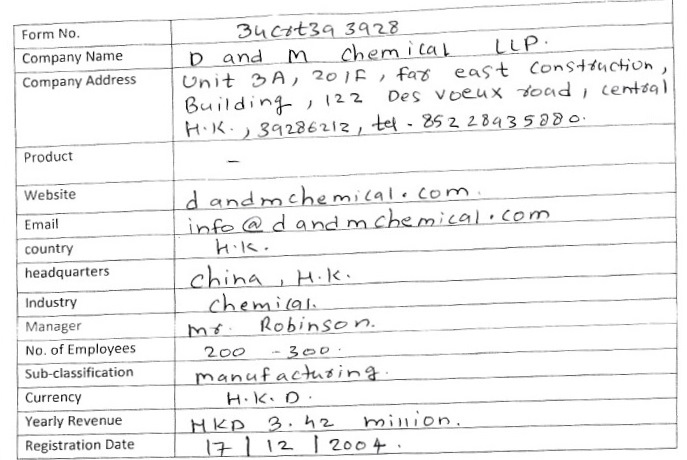 Form No. 34crt39 3928
Company Name D and M chemical LLP.
Company Address Unit 3A, 20/F, far east construction,
Building, 122 Des voeux road, central
H.K., 39286212, tel - 852 28935880.
Product –
Website dandmchemical.com.
Email info@dandmchemical.com
country H.K.
headquarters china, H.K.
Industry chemical.
Manager mr. Robinson.
No. of Employees 200 - 300.
Sub-classification manufacturing.
Currency H.K.D.
Yearly Revenue HKD 3.42 million.
Registration Date 17 | 12 | 2004.